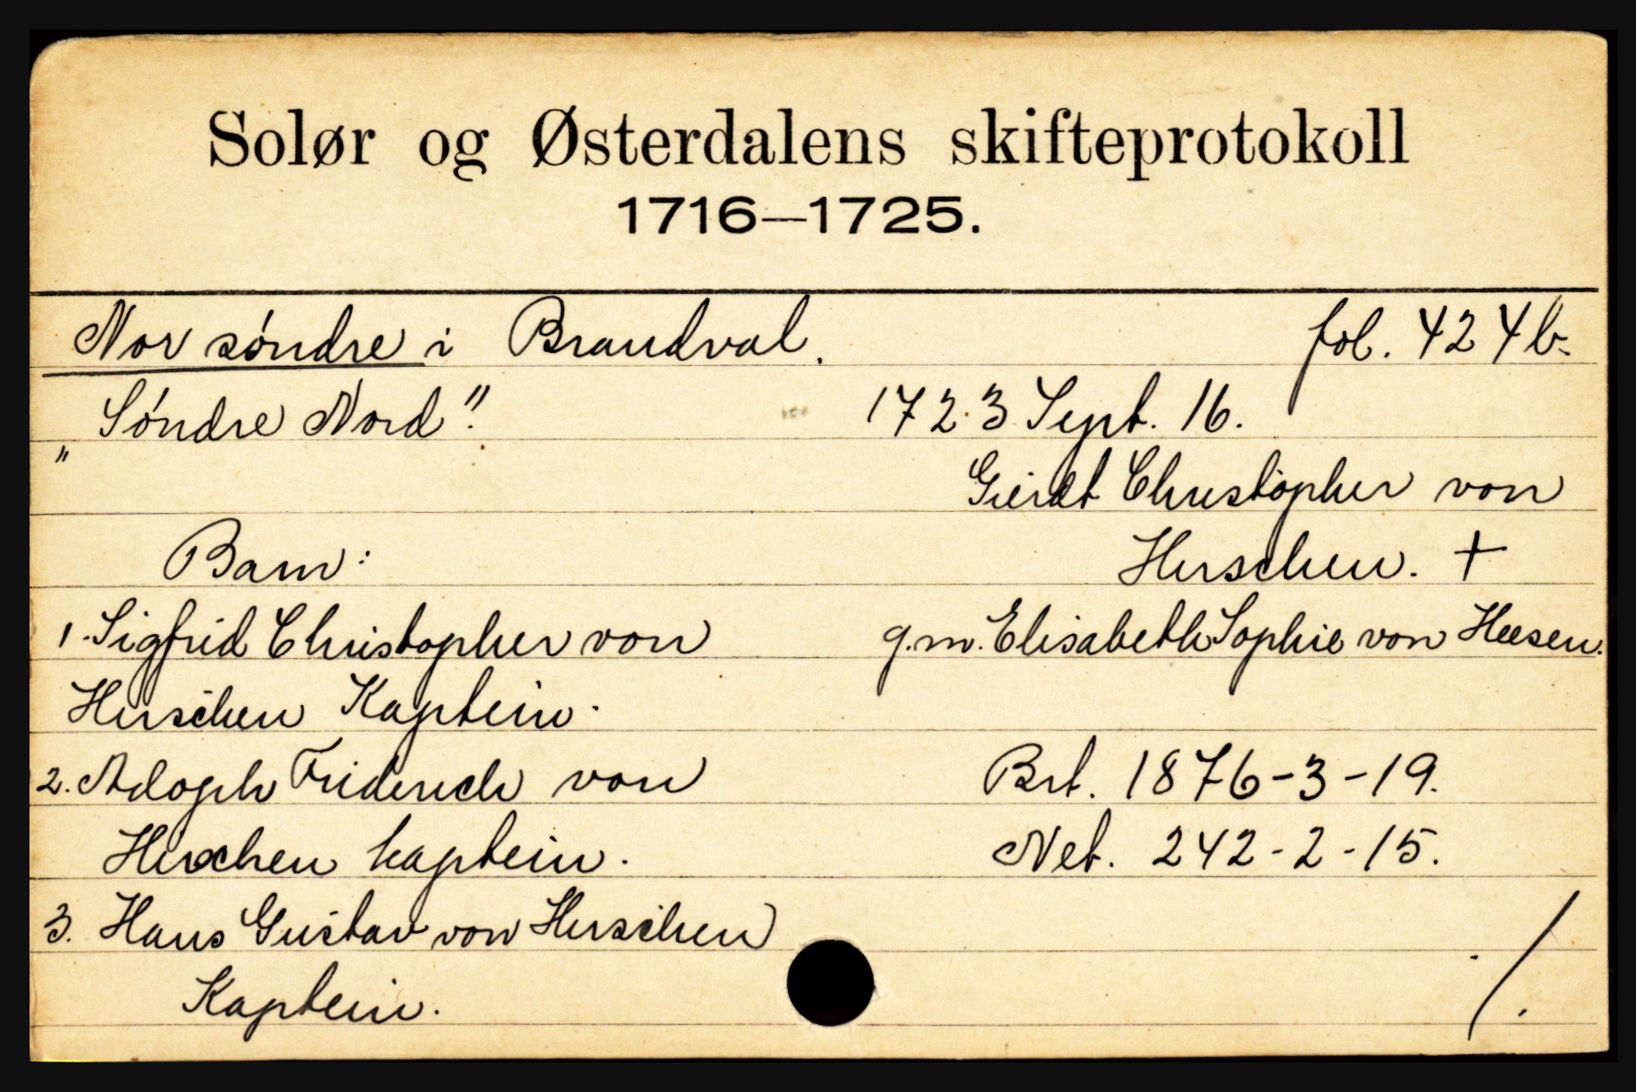 Solør og Østerdalens skifteprotokoll
1716—1725.
Nor søndre i Brandval. fol. 424b.
„Søndre Nord". 1723 Sept. 16.
Gierdt Christopher von
Barn: Herschen. +
1. Sigfrid Christopher von g.m. Elisabeth Sophie von Heesen.
Herschen Kaptein.
2. Adolph Friderich von Brt. 1876-3-19.
Herschen kaptein. Net. 242-2-15.
3. Hans Gustav von Herschen
Kaptein. ./.